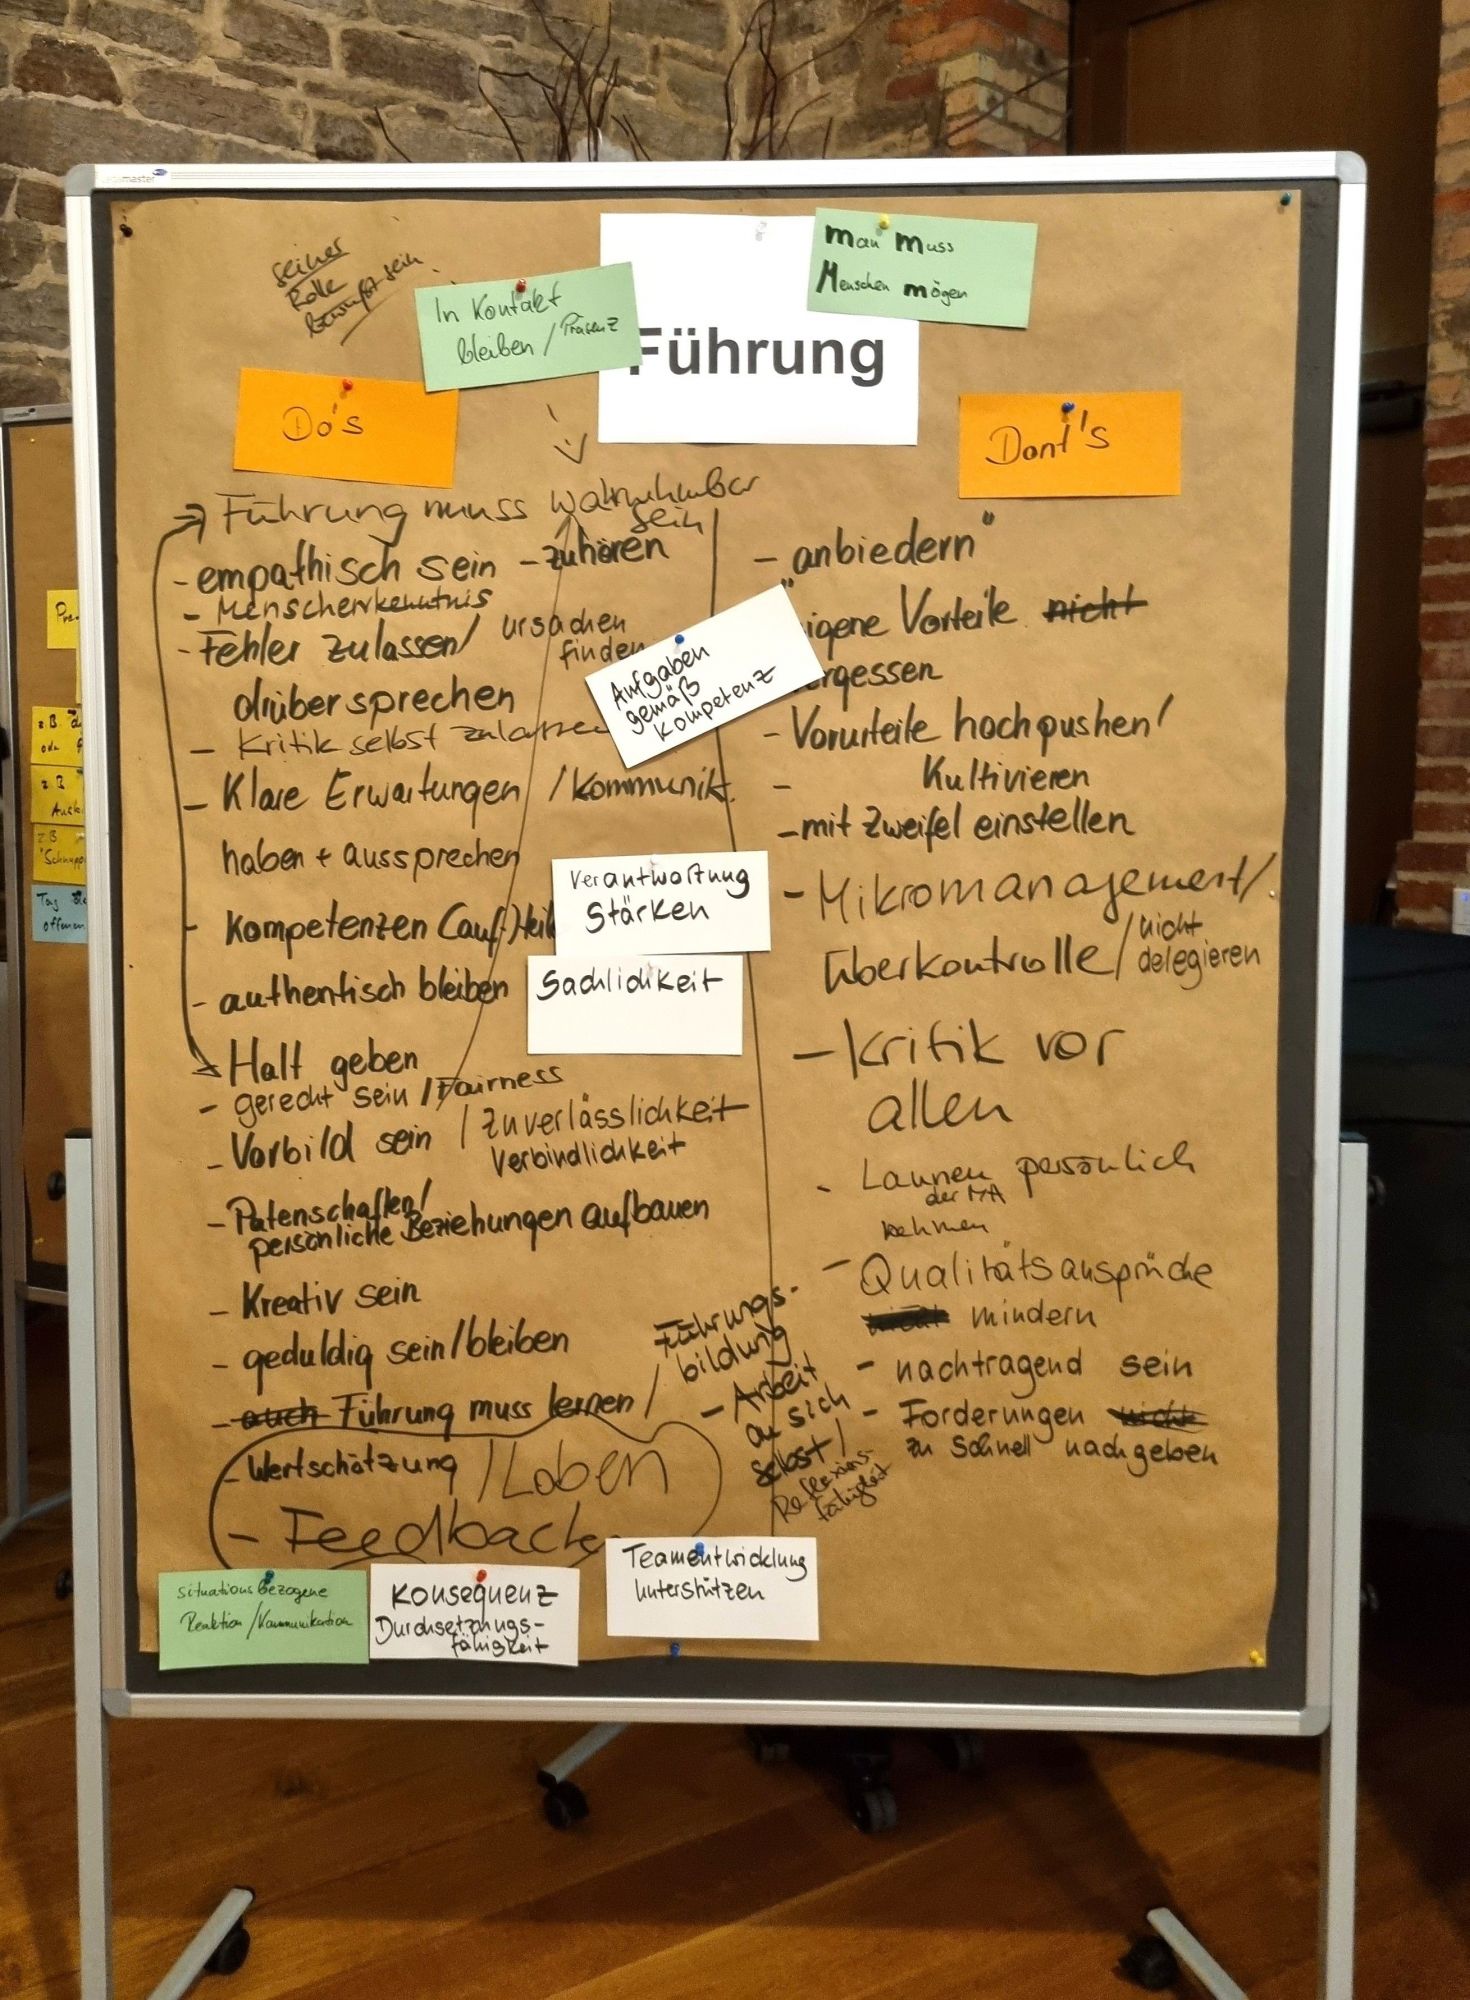 seiner
Rolle
bewußt sein
In Kontakt
bleiben / Präsenz
man muss
Menschen mögen
Führung
Do's
Dont's
Führung muss wahrnehmbar
sein
- empathisch sein - zuhören
- Menschenkenntnis
- Fehler zulassen / ursachen
finden
drüber sprechen
- Kritik selbst zulassen
- Klare Erwartungen / Kommunik.
haben + aussprechen
- Kompetenzen (auf-)teil
- authentisch bleiben
Halt geben
- gerecht sein / Fairness
- Vorbild sein / Zuverlässlichkeit
Verbindlichkeit
- Patenschaften /
persönliche Beziehungen aufbauen
- Kreativ sein
- geduldig sein / bleiben
- auch Führung muss lernen /
Führungs-
bildung
- Arbeit
an sich
selbst /
Reflexions-
fähigkeit
- Wertschätzung / Loben
- Feedback
Aufgaben
gemäß
Kompetenz
Verantwortung
Stärken
Sachlichkeit
- anbiedern"
"
igene Vorteile nicht
ergessen
- Vorurteile hochpushen /
- Kultivieren
- mit Zweifel einstellen
- Mikromanagement /
überkontrolle / nicht
delegieren
- Kritik vor
allen
- Launen persönlich
der MA
nehmen
- Qualitätsansprüche
nicht mindern
- nachtragend sein
- Forderungen nicht
zu Schnell nachgeben
situationsbezogene
Reaktion / Kommunikation
Konsequenz
Durchsetzungs-
fähigkeit
Teamentwicklung
unterstützen
z.B.
z.B.
z.B.
Tag
offenen